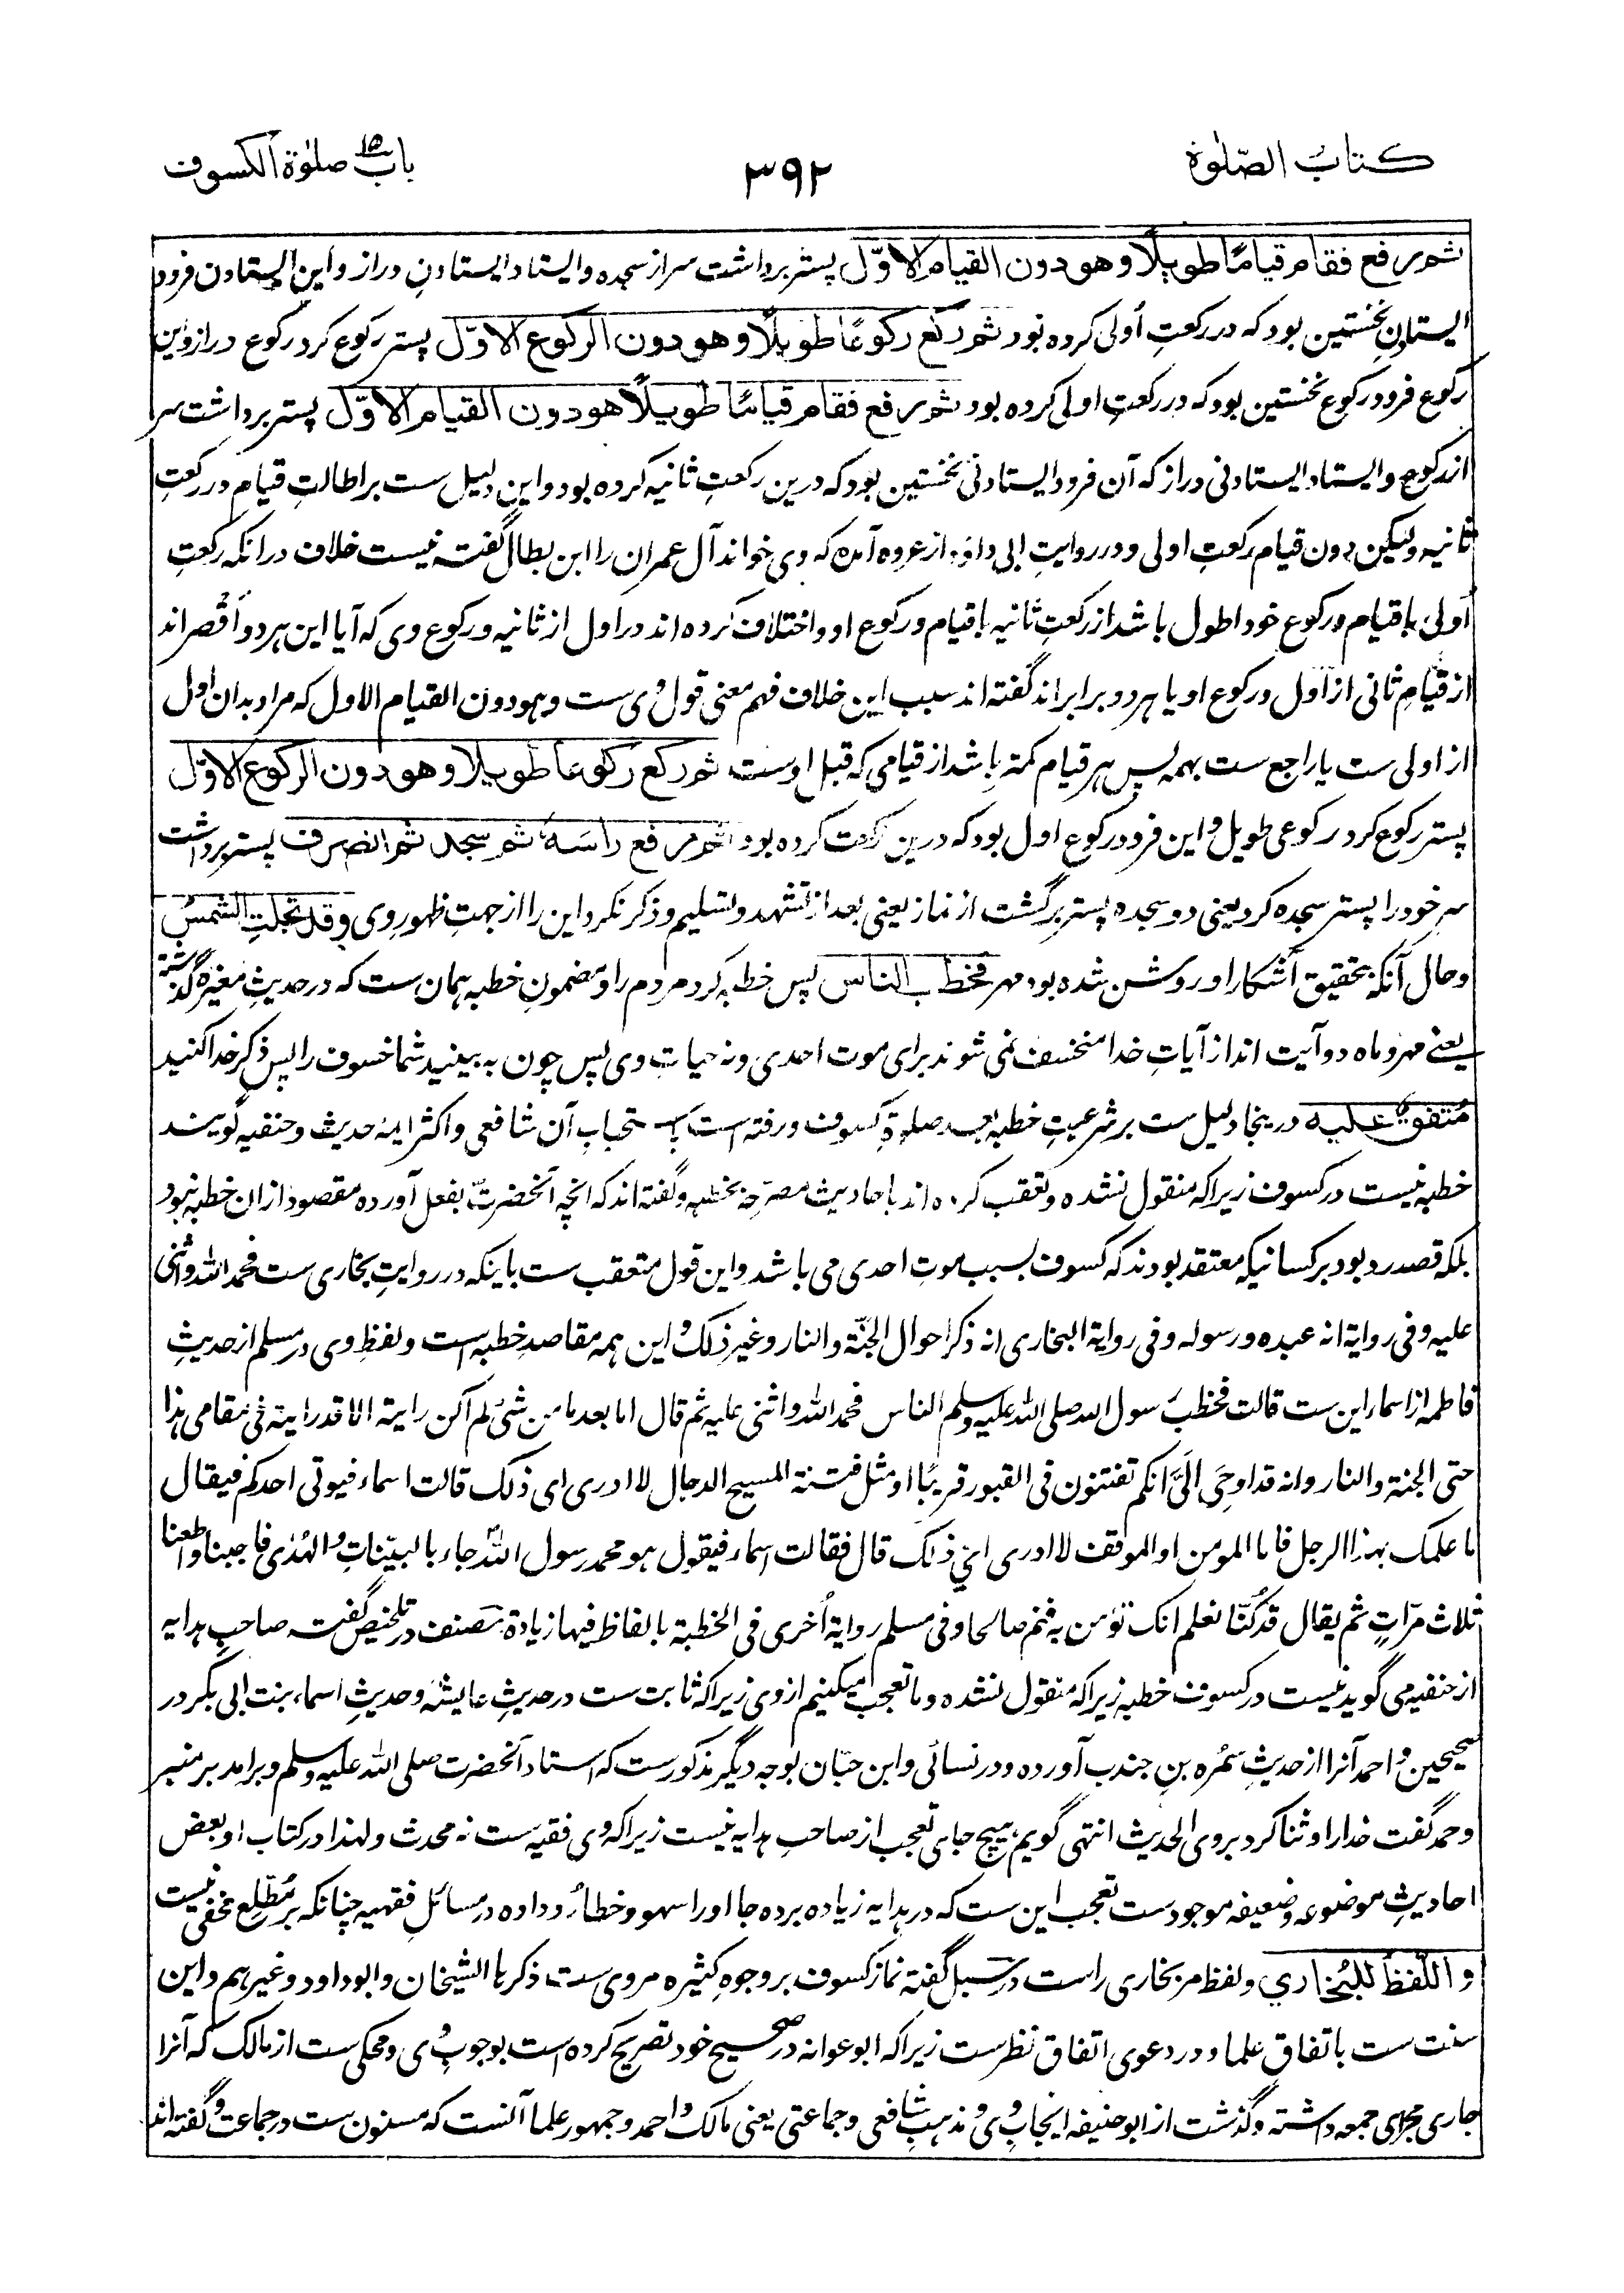 کتابُ الصّلوٰة
۳۹۲
باب ۱۵ صلوٰة الکسوف
ثم رفع فقام قیامًا طویلًا و هو دون القیام الاوّل پستر برداشت سر از سجده و ایستاد ایستادنِ دراز و این ایستادن فرود
ایستادنِ نخستین بود که در رکعتِ اُولی کرده بود ثم رکع رکوعًا طویلًا و هو دون الرکوع الاوّل پستر رکوع کرد رکوع دراز و این
رکوع فرود رکوع نخستین بود که در رکعتِ اولی کرده بود ثم رفع فقام قیامًا طویلًا هو دون القیام الاوّل پستر برداشت سر
از رکوع و ایستاد ایستادنی دراز که آن فرود ایستادنی نخستین بود که درین رکعتِ ثانیه کرده بود و این دلیل ست بر اطالتِ قیام در رکعتِ
ثانیه ولیکن دون قیام رکعتِ اولی و در روایتِ ابی داؤد از عروه آمده که وی خواند آل عمران را ابن بطال گفته نیست خلاف در انکه رکعتِ
اُولی با قیام و رکوع خود اطول باشد از رکعتِ ثانیه با قیام و رکوع او و اختلاف کرده اند در اول از ثانیه و رکوع وی که آیا این هر دو اَقْصر اند
از قیامِ ثانی از اول و رکوع او یا هر دو برابر اند گفته اند سبب این خلاف فهم معنی قول وی ست و هو دون القیام الاول که مراد بدان اول
از اولی ست یا راجع ست بهمه پس هر قیام کمتر باشد از قیامی که قبل اوست ثم رکع رکوعا طویلا و هو دون الرکوع الاوّل
پستر رکوع کرد رکوعی طویل و این فرود رکوع اول بود که درین رکعت کرده بود ثم رفع راسَهٗ ثم سجد ثم انصرف پستر برداشت
سرِ خود را پستر سجده کرد یعنی دو سجده پستر برگشت از نماز یعنی بعد از تشهد و تسلیم و ذکر نکرد این را از جهتِ ظهورِ وی و قد تجلتِ الشمسُ
و حال آنکه بتحقیق آشکارا و روشن شده بود مهر فخطب الناس پس خطبه کرد مردم را و مضمونِ خطبه همان ست که در حدیثِ مغیره گذشته
یعنے مهر و ماه دو آیت اند از آیاتِ خدا منخسف نمی شوند برای موت احدی و نه حیات وی پس چون به بینید شما خسوف را پس ذکرِ خدا کنید
مُتفق علیه درینجا دلیل ست بر شرعیتِ خطبه بعد صلوةِ کسوف و رفته است باستحبابِ آن شافعی و اکثر ایمهٔ حدیث و حنفیه گویند
خطبه نیست در کسوف زیرا که منقول نشده و تعقب کرده اند باحادیث مصرّحه بخطبه و گفته اند که انچه آنحضرت بفعل آورده مقصود ازان خطبه نبود
بلکه قصد رد بود بر کسانیکه معتقد بودند که کسوف بسبب موتِ احدی می باشد و این قول متعقب ست باینکه در روایتِ بخاری ست فحمد الله واثنی
علیه و فی روایة انه عبده و رسوله و فی روایة البخاری انه ذکر احوال الجنّة و النار و غیر ذلک و این همه مقاصدِ خطبه است و لفظِ وی در مسلم از حدیثِ
فاطمه از اسماء این ست قالت فخطب رسول الله صلی الله علیه وسلم الناس فحمد الله واثنی علیه ثم قال اما بعد ما من شئ لم اکن رایته الا قد رایته فی مقامی هذا
حتی الجنة و النار و انه قد اوحِیَ الَیَّ انکم تفتنون فی القبور قریبًا او مثل فتنة المسیح الدجال لا ادری ای ذلک قالت اسماء فیوتی احدکم فیقال
ما علمک بهذا الرجل فاما المومن او الموقن لا ادری ایّ ذلک قال فقالت اسماء فیقول هو محمد رسول اللّٰه جاء بالبیّناتِ و الهُدٰی فاجبنا واطعنا
ثلاث مرّاتٍ ثم یقال قد کُنّا نعلم انک تؤمن به فنم صالحا و فی مسلم روایة اُخری فی الخطبة بالفاظ فیها زیادة مصنف در تلخیص گفته صاحبِ هدایه
از حنفیه می گوید نیست در کسوف خطبه زیرا که منقول نشده و ما تعجب میکنیم از وی زیرا که ثابت ست در حدیثِ عایشه و حدیثِ اسماء بنت ابی بکر در
صحیحین و احمد آنرا از حدیثِ سَمُره بنِ جندب آورده و در نسائی و ابن حبّان بوجه دیگر مذکور ست که استاد آنحضرت صلی الله علیه وسلم و برامد بر منبر
و حمد گفت خدا را و ثنا کرد بروی الحدیث انتهی گویم هیچ جای تعجب از صاحبِ هدایه نیست زیرا که وی فقیه ست نه محدث و لهذا در کتاب او بعض
احادیثِ موضوعه و ضعیفه موجودست تعجب این ست که در هدایه زیاده برده جا او را سهو و خطا رُو داده در مسائلِ فقهیه چنانکه بر مُطّلِع مخفی نیست
و اللّفظُ للبُخاري و لفظ مر بخاری راست در سبل گفته نماز کسوف بر وجوهِ کثیره مروی ست ذکرها الشیخان و ابو داود و غیرهم و این
سنت ست باتفاقِ علما و در دعوی اتفاق نظر ست زیرا که ابو عوانه در صحیح خود تصریح کرده است بوجوبِ وی و محکی ست از مالک که آنرا
جاری مجرای جمعه داشته و گذشت از ابو حنیفه ایجابِ وی و مذهبِ شافعی و جماعتی یعنی مالک و احمد و جمهور علما آنست که مسنون ست در جماعت و گفته اند